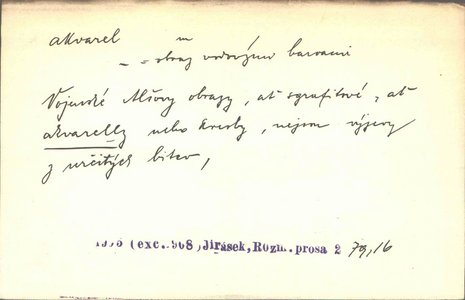 akvarel m
– = obraz vodovými barvami
Vojenské Alšovy obrazy, ať sgrafitové, ať
akvarelly nebo kresby, nejsou výjevy
z určitých bitev,
(exc. 908) Jirásek, Rozm. prosa 2 79, 16